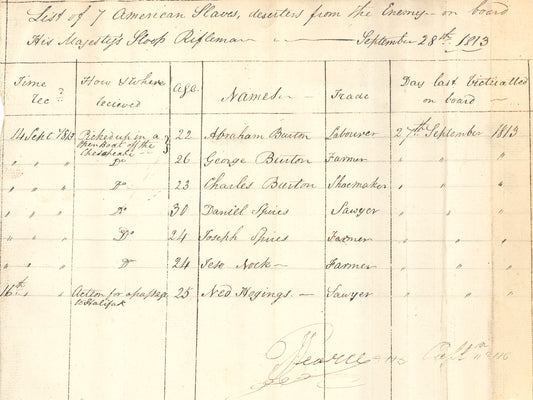 List of 7 American Slaves, deserters from the Enemy — on board
His Majesty's Sloop Rifleman — September 28th 1813
Time rec.d How & Where recieved Age Names — Trade Day last victualled on board —
14 Sept 1813 Picked up in a Open boat off the Chesapeake — 22 Abraham Burton Labourer 27th September 1813
" " " Do 26 George Burton Farmer " " "
" " " Do 23 Charles Burton Shoemaker " " "
" " " Do 30 Daniel Spires Sawyer " " "
" " " Do 24 Joseph Spires Farmer " " "
" " " Do 24 Nock — Farmer " " "
16th " " for a passage to Halifax 25 Ned Hogings — Sawyer " " "
Pearce